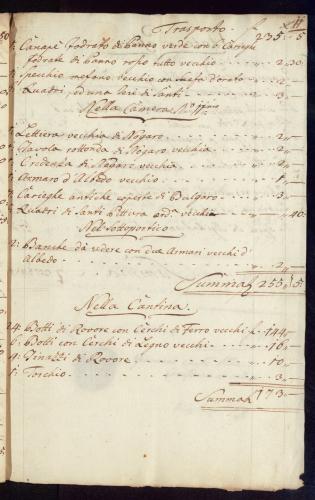 11
Trasporto £ 235:5
1: Canapè Fodrato di Panno verde con 6 Carieghe
fodrate di Panno rosso tutto vecchio 2:30
1: Specchio mezano vecchio con soaza dorata 2:-
Quadri ed una Seri di Santi 2:-
Nella Camera N:º
1: Lettiera vecchia di Nogaro 2:-
1: Tavola rottonda di Nogaro vecchia 2:-
1: Credenza di Nogaro vecchia 2:-
1: Armaro d'Albedo vecchio 1:-
7: Carieghe antiche coperte di Bulgaro 3:-
Quadri di Santi Pittura ord:a vecchia :40
Nel Sottoportico
2: Banche da sedere con due Armari vecchi d'
Albedo 2:-
Summa £ 255:5
Nella Cantina
24: Botti di Rovore con Cerchi di Ferro vecchi £ 144:-
6: Botti con Cerchi di Legno vecchi 16:-
4: Tinazzi di Rovore 10:-
1: Torchio 3:-
Summa £ 173:-